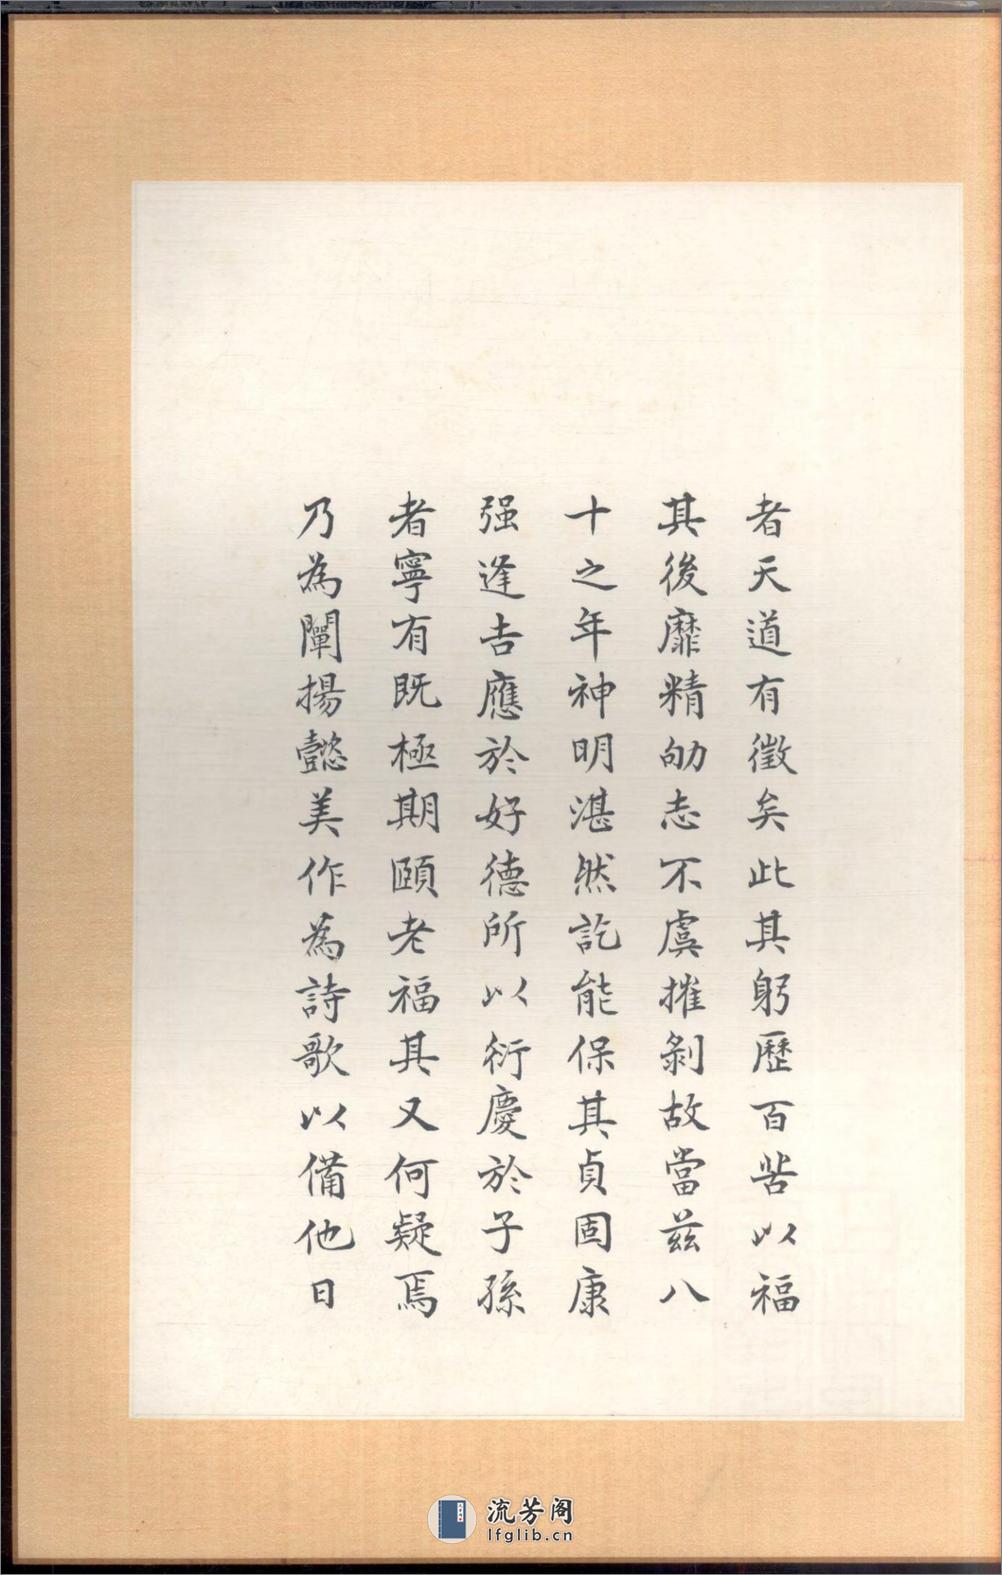 者天道有徵矣此其躬歷百苦以福
其後靡精劬志不虞摧剝故當茲八
十之年神明湛然訖能保其貞固康
强逢吉應於好德所以衍慶於子孫
者寧有既極期頤老福其又何疑焉
乃為闡揚懿美作為詩歌以備他日
流芳阁
lfglib.cn